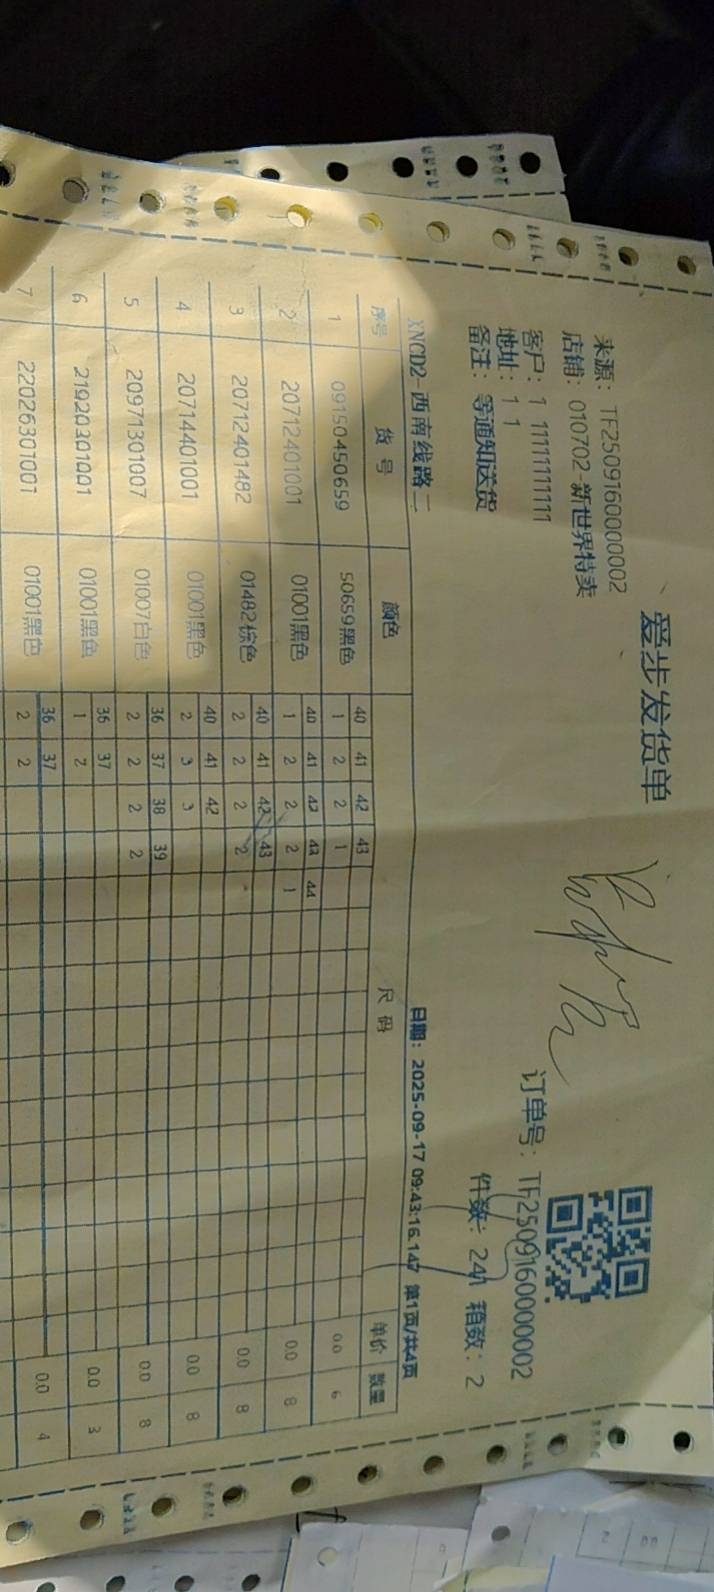 爱步发货单
来源： TF2509160000002
店铺： 010702-新世界特卖
订单号： TF2509160000002
客户： 1 11111111111
地址： 1 1
件数： 241 箱数： 2
备注： 等通知送货
XNCD2-西南线路二 日期： 2025-09-17 09:43:16.147 第1页/共4页
序号 货号 颜色 尺码 单价 数量
40 41 42 43
1 09150450659 50659黑色 1 2 2 1 0.0 6
40 41 42 43 44
2 20712401001 01001黑色 1 2 2 2 1 0.0 8
40 41 42 43
3 20712401482 01482棕色 2 2 2 2 0.0 8
40 41 42
4 20714401001 01001黑色 2 3 3 0.0 8
36 37 38 39
5 20971301007 01007白色 2 2 2 2 0.0 8
36 37
6 21920301001 01001黑色 1 2 0.0 3
36 37
7 22026301001 01001黑色 2 2 0.0 4